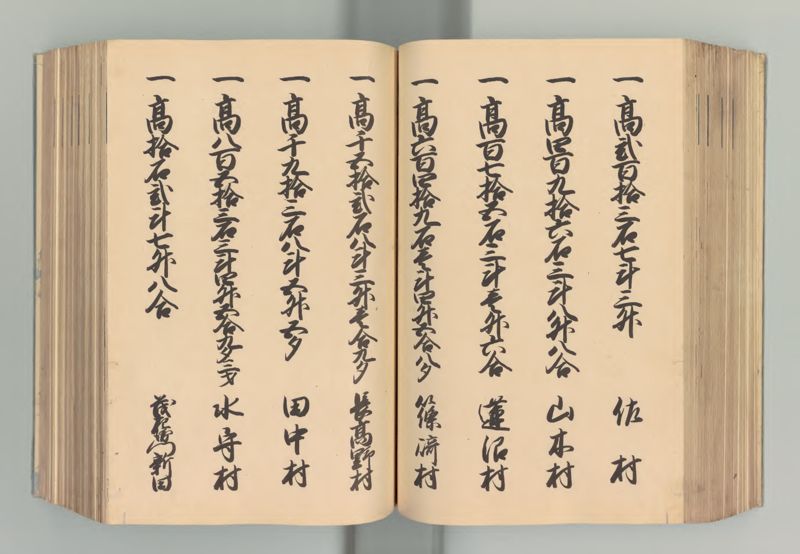 一 高弐百拾三石七斗三升 佐村
一 高四百九拾六石三斗八升八合 山本村
一 高百七拾五石三斗壱升六合 蓮沼村
一 高六百四拾九石壱斗四升五合八夕 篠崎村
一 高千五拾弐石八斗三升壱合九夕 長高野村
一 高千九拾三石八斗五升五夕 田中村
一 高八百五拾三石三斗四升五合九夕三才 水守村
一 高拾石弐斗七升八合 新田